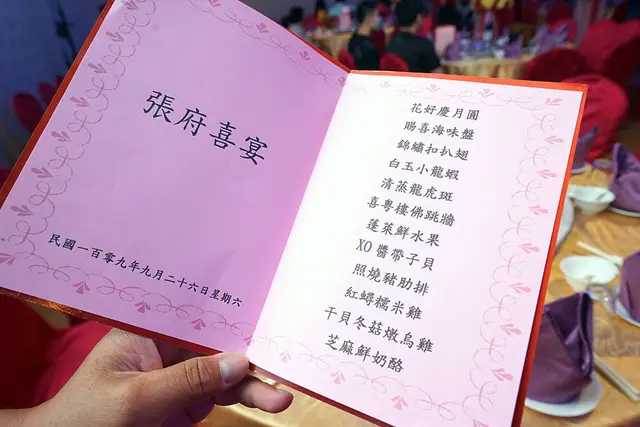 張府喜宴
民國一百零九年九月二十六日星期六
花好慶月圓
賜喜海味盤
錦繡扣扒翅
白玉小龍蝦
清蒸龍虎斑
喜粵樓佛跳牆
蓬萊鮮水果
XO醬帶子貝
照燒豬肋排
紅蟳糯米雞
干貝冬菇燉烏雞
芝麻鮮奶酪